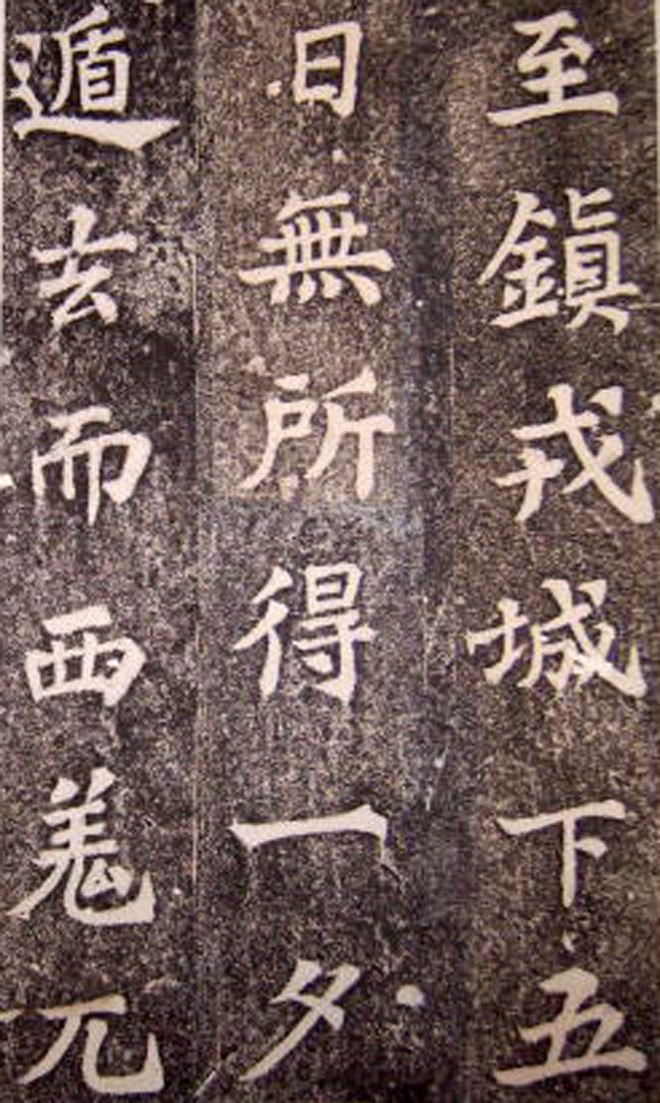 至鎮戎城下五
日無所得一夕
遁去而西羌兀